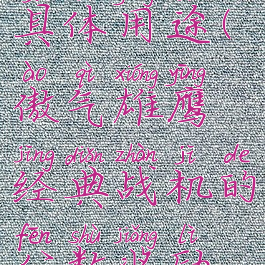 具体用途(
ào qì xióng yīng
傲气雄鹰
jīng diǎn zhàn jī de
经典战机的
fēn shù jiǎng lì